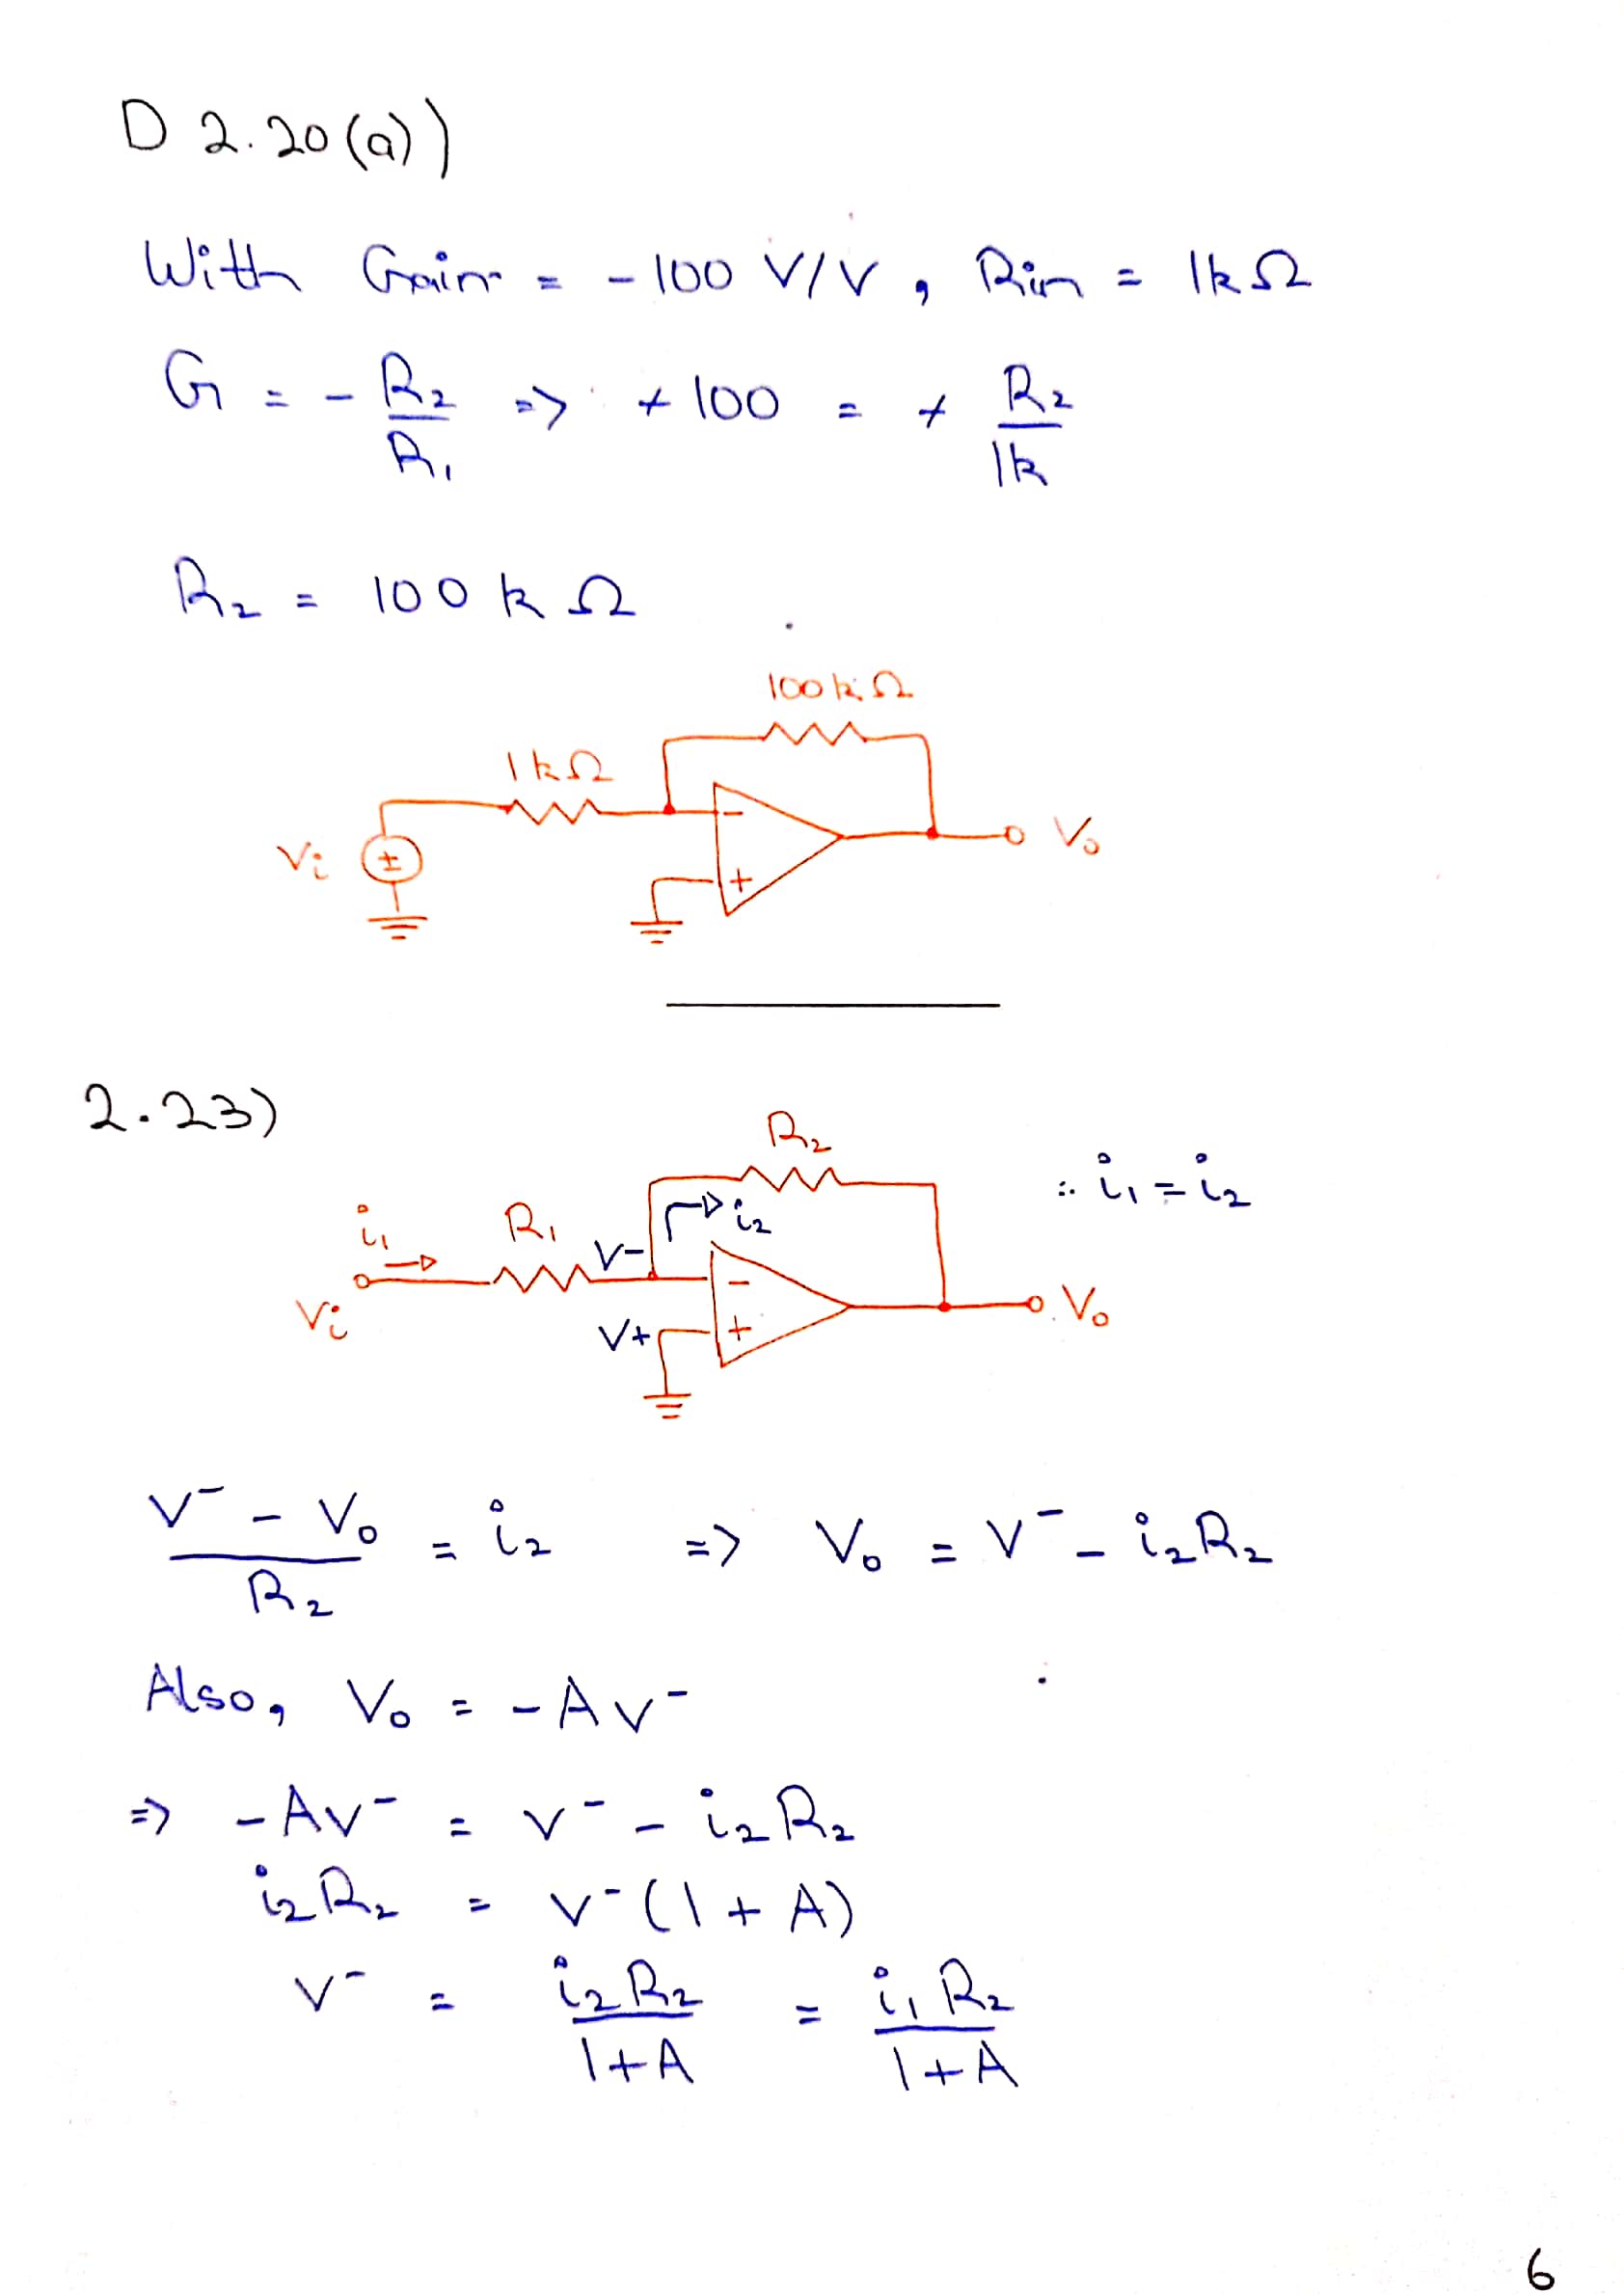 D 2.20(a))
With Gain = -100 V/V, Rin = 1kΩ
G = - R2/R1 => +100 = + R2/1k
R2 = 100kΩ
100kΩ
1kΩ
Vi
Vo
2.23)
R2
∴ i1 = i2
i1
R1
V-
i2
Vi
V+
Vo
(V⁻ - Vo)/R2 = i2 => Vo = V⁻ - i2R2
Also, Vo = -AV⁻
=> -AV⁻ = V⁻ - i2R2
i2R2 = V⁻(1+A)
V⁻ = i2R2/(1+A) = i1R2/(1+A)
6